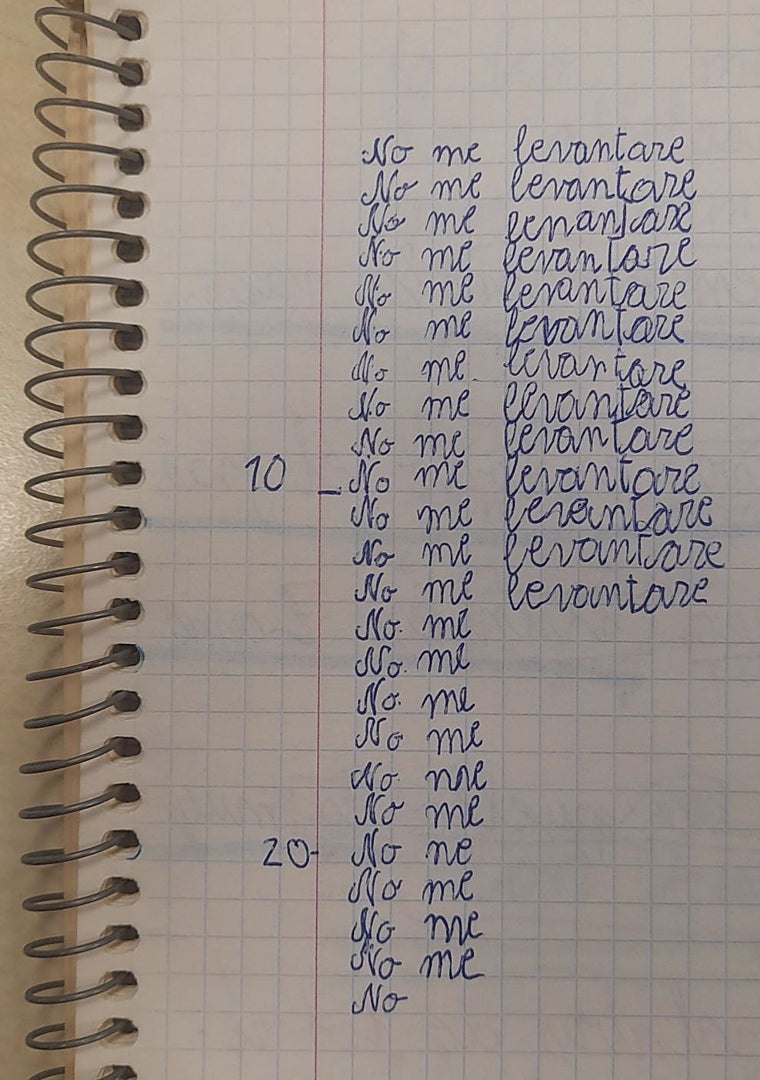 No me levantare
No me levantare
No me lenantare
No me levantare
No me levantare
No me levantare
No me levantare
No me levantare
No me levantare
10 - No me levantare
No me levantare
No me levantare
No me levantare
No. me
No. me
No. me
No me
No. me
No me
20- No ne
No me
No me
No me
No